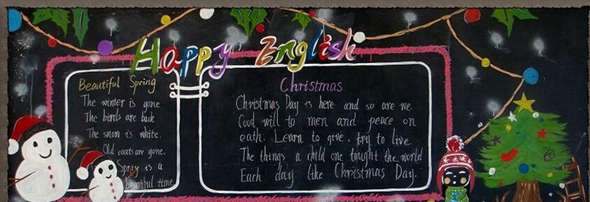 Happy English
Beautiful Spring
The winter is gone
The birds are back
The snow is white.
Old coats are gone.
Spring is a
beautiful time
Christmas
Christmas Day is here and so are we
Good will to men and peace on
eath. Learn to give, try to live
The things a child one tought the world
Each day like Christmas Day.